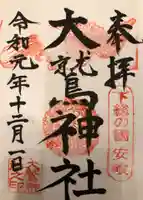 奉拝
下総の國 安食
大鷲神社
令和元年十二月一日